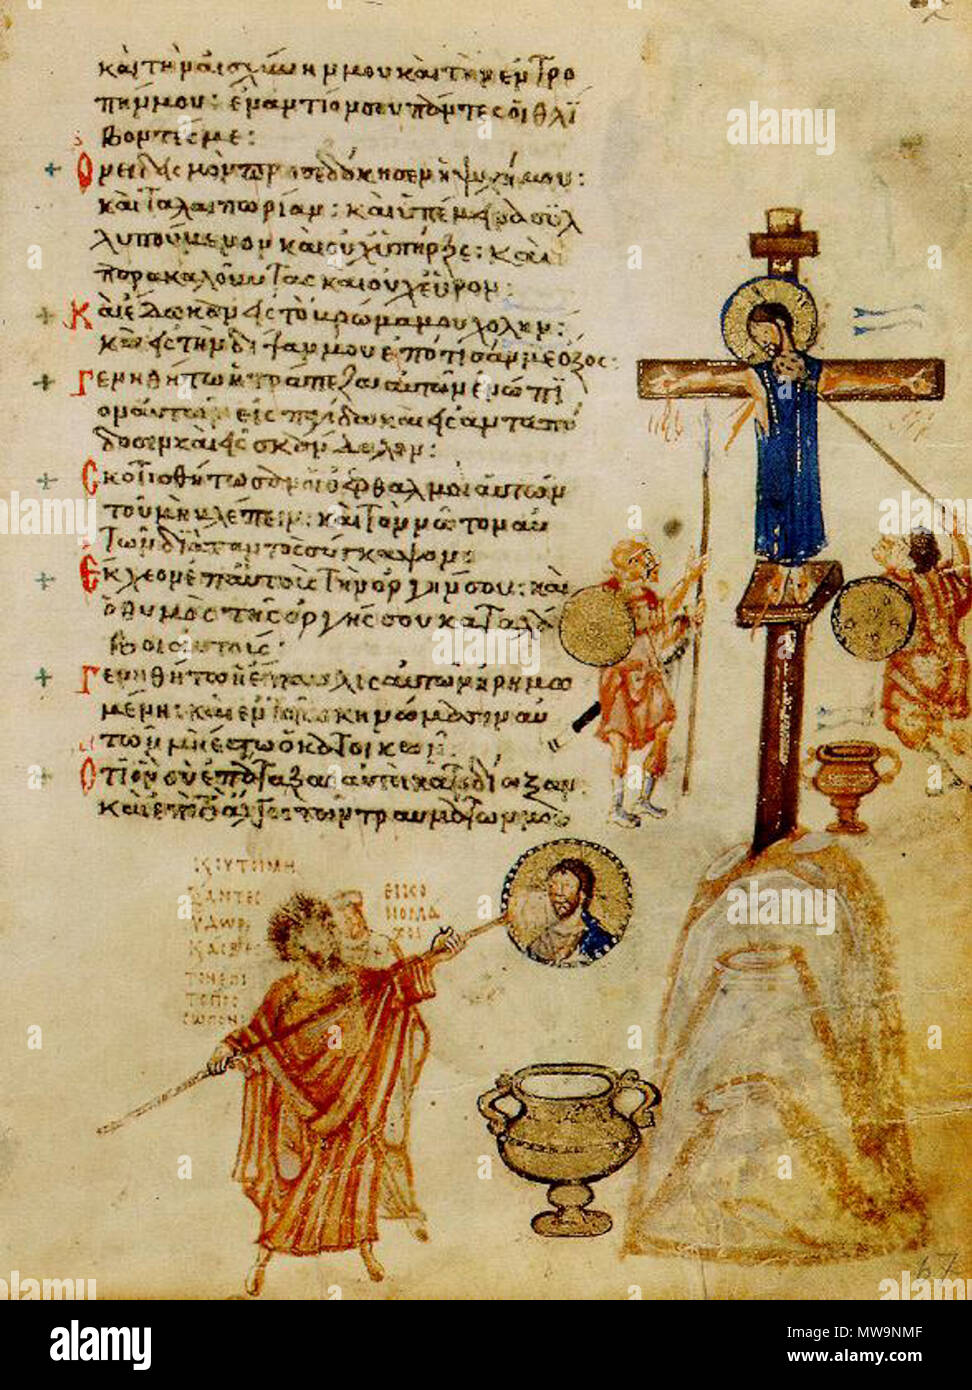 καὶ τὴν αἰσχύνην μου καὶ τὴν ἐντρο
πήν μου: ἐναντίον σου πάντες οἱ θλί
βοντές με:
Ὀνειδισμὸν προσεδόκησεν ἡ ψυχή μου:
καὶ ταλαιπωρίαν: καὶ ὑπέμεινα συλ
λυπούμενον καὶ οὐχ ὑπῆρξε: καὶ
παρακαλοῦντας καὶ οὐχ εὗρον:
Καὶ ἔδωκαν εἰς τὸ βρῶμά μου χολήν:
καὶ εἰς τὴν δίψαν μου ἐπότισάν με ὄξος:
Γενηθήτω ἡ τράπεζα αὐτῶν ἐνώπι
ον αὐτῶν εἰς παγίδα καὶ εἰς ἀνταπό
δοσιν καὶ εἰς σκάνδαλον:
Σκοτισθήτωσαν οἱ ὀφθαλμοὶ αὐτῶν
τοῦ μὴ βλέπειν: καὶ τὸν νῶτον αὐ
τῶν διὰ παντὸς σύγκαμψον:
Ἔκχεον ἐπ' αὐτοὺς τὴν ὀργήν σου: καὶ
ὁ θυμὸς τῆς ὀργῆς σου καταλά
βοι αὐτούς:
Γενηθήτω ἡ ἔπαυλις αὐτῶν ἠρημω
μένη: καὶ ἐν τοῖς σκηνώμασιν αὐ
τῶν μὴ ἔστω ὁ κατοικῶν:
Ὅτι ὃν σὺ ἐπάταξας αὐτοὶ κατεδίωξαν
καὶ ἐπὶ τὸ ἄλγος τῶν τραυμάτων μου
ΕΙΚΟ
ΝΟΜΑ
ΧΟΙ
ΥΔΩΡ
67
alamy
Image ID: MW9NMF
www.alamy.com